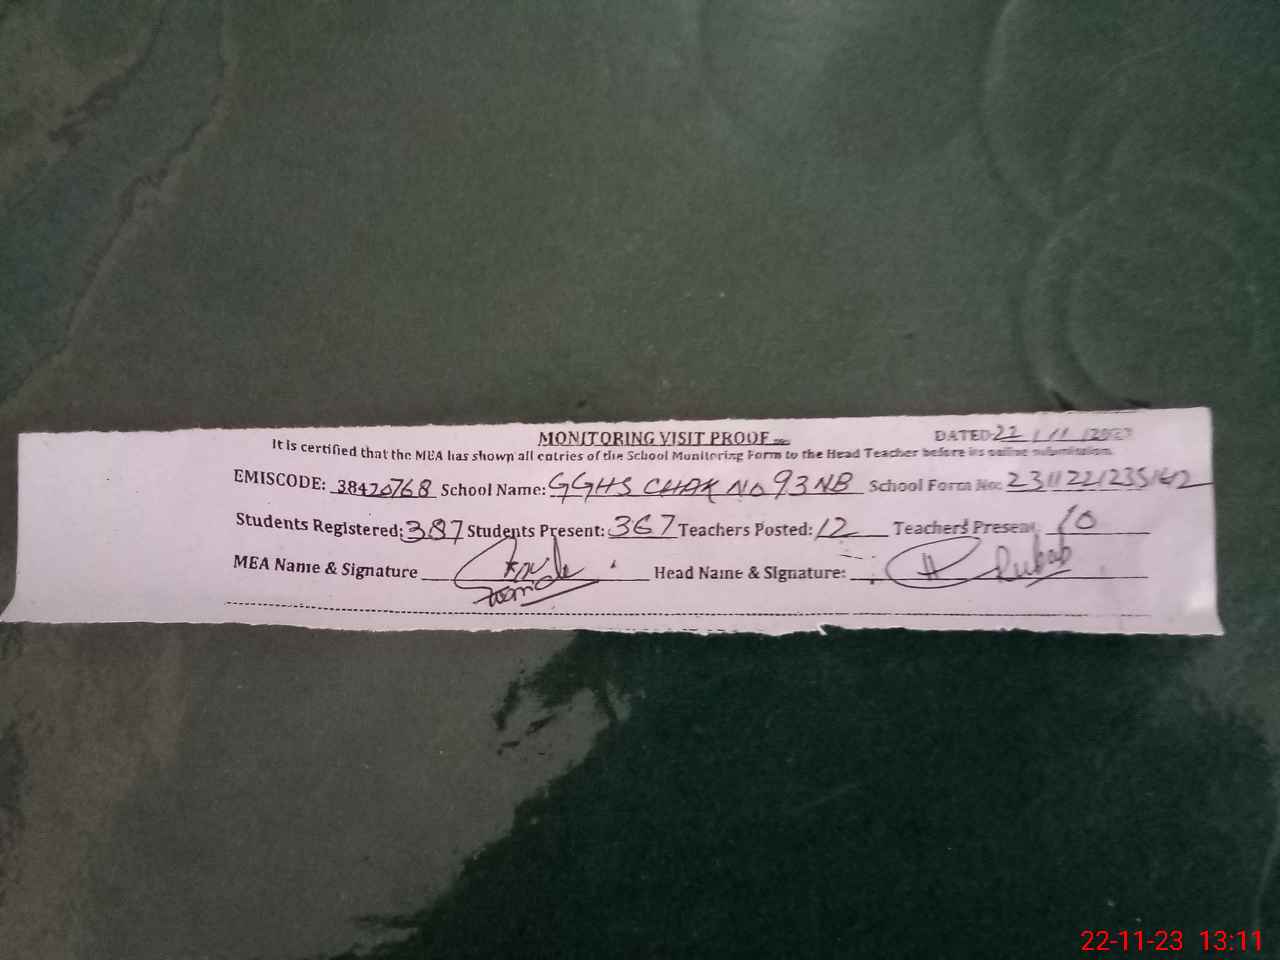 MONITORING VISIT PROOF
DATED 22/11/2023
It is certified that the MEA has shown all entries of the School Monitoring Form to the Head Teacher before its online submission.
EMISCODE: 38420768 School Name: GGHS CHAK NO 93 NB School Form No: 23112212351612
Students Registered: 387 Students Present: 367 Teachers Posted: 12 Teachers Present 10
MEA Name & Signature Head Name & Signature: Rubab
22-11-23 13:11